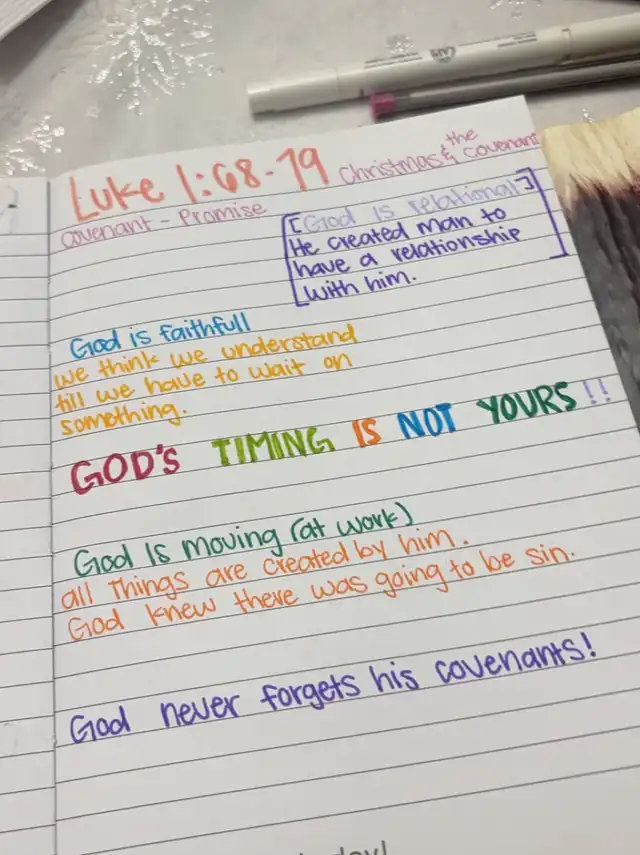 Luke 1:68-79 Christmas & the covenant
Covenant - Promise
[God is relational]
He created man to
have a relationship
with him.
God is faithfull
we think we understand
till we have to wait on
something.
GOD'S TIMING IS NOT YOURS!!
God Is moving (at work)
all things are created by him.
God knew there was going to be sin.
God never forgets his covenants!